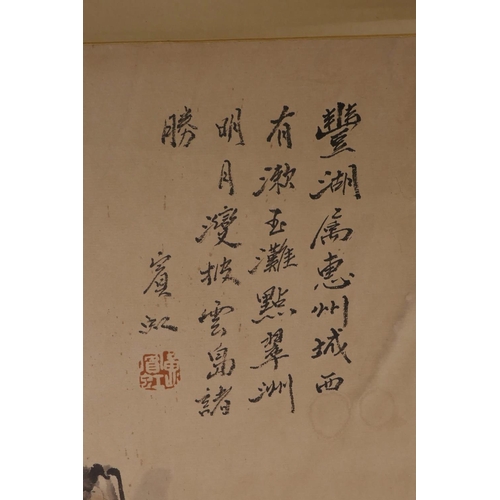 豐湖属惠州城西
有漱玉灘點翠洲
明月灣披雲島諸
勝
賓虹